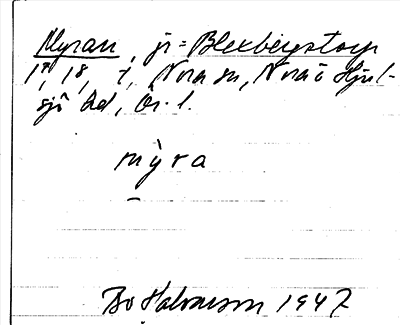 Myran, jr = Blexbergstorp
17, 18, i, Nora sn, Nora o Hjul-
sjö bd, Ör. l.
mỳra
Bo Halvarson 1947